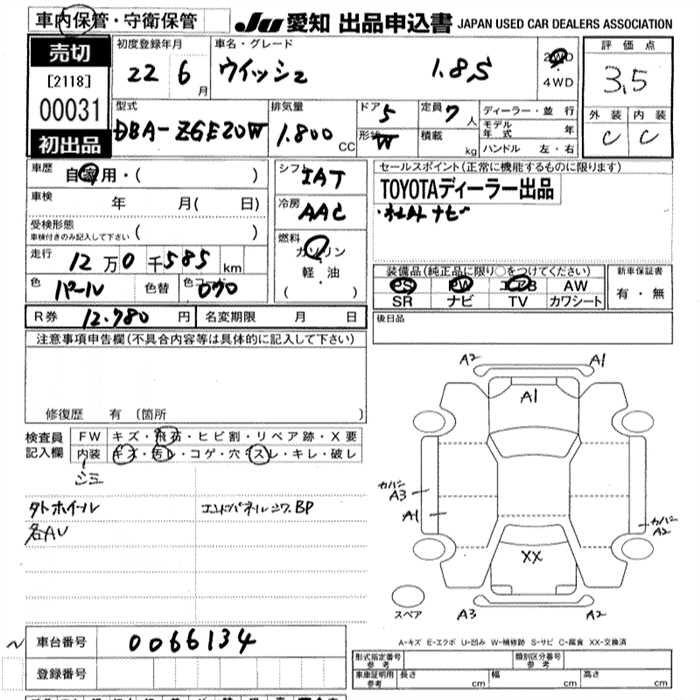 車内保管・守衛保管
JU 愛知 出品申込書 JAPAN USED CAR DEALERS ASSOCIATION
売切
[2118]
00031
初出品
初度登録年月
22 6 月
車名・グレード
ウイッシュ 1.8S
2WD
・
4WD
評価点
3.5
外装 内装
C C
型式
DBA-ZGE20W
排気量
1.800 CC
ドア 5
形状 W
定員 7 人
積載 kg
ディーラー・並行
モデル年式 年
ハンドル 左・右
車歴
自家用・( )
車検 年 月( 日)
受検形態
車検付きのみ記入して下さい ( )
走行 12万0千585 km
色 パール 色替 色コード 070
シフト IAT
冷房 AAC
燃料
ガソリン
・
軽・油
( )
セールスポイント(正常に機能するものに限ります)
TOYOTAディーラー出品
・社外ナビ
装備品(純正品に限り○をつけてください)
PS PW エアB AW
SR ナビ TV カワシート
新車保証書
有・無
R券 12.780 円 名変期限 月 日
後日品
注意事項申告欄(不具合内容等は具体的に記入して下さい)
修復歴 有(箇所 )
検査員
記入欄
FW キズ・飛石・ヒビ割・リペア跡・X要
内装 キズ・汚レ・コゲ・穴・スレ・キレ・破レ
シミ
タトホイール
各AU
エンドパネルシワ.BP
A2 A1
A1
カバン
A3
A1
カバン
A2
XX
スペア
A3 A2
A-キズ E-エクボ U-凹み W-補修跡 S-サビ C-腐食 XX-交換済
車台番号 0066134
登録番号
型式指定番号
参考
類別区分番号
参考
車庫証明用
参考
長さ cm 幅 cm 高さ cm